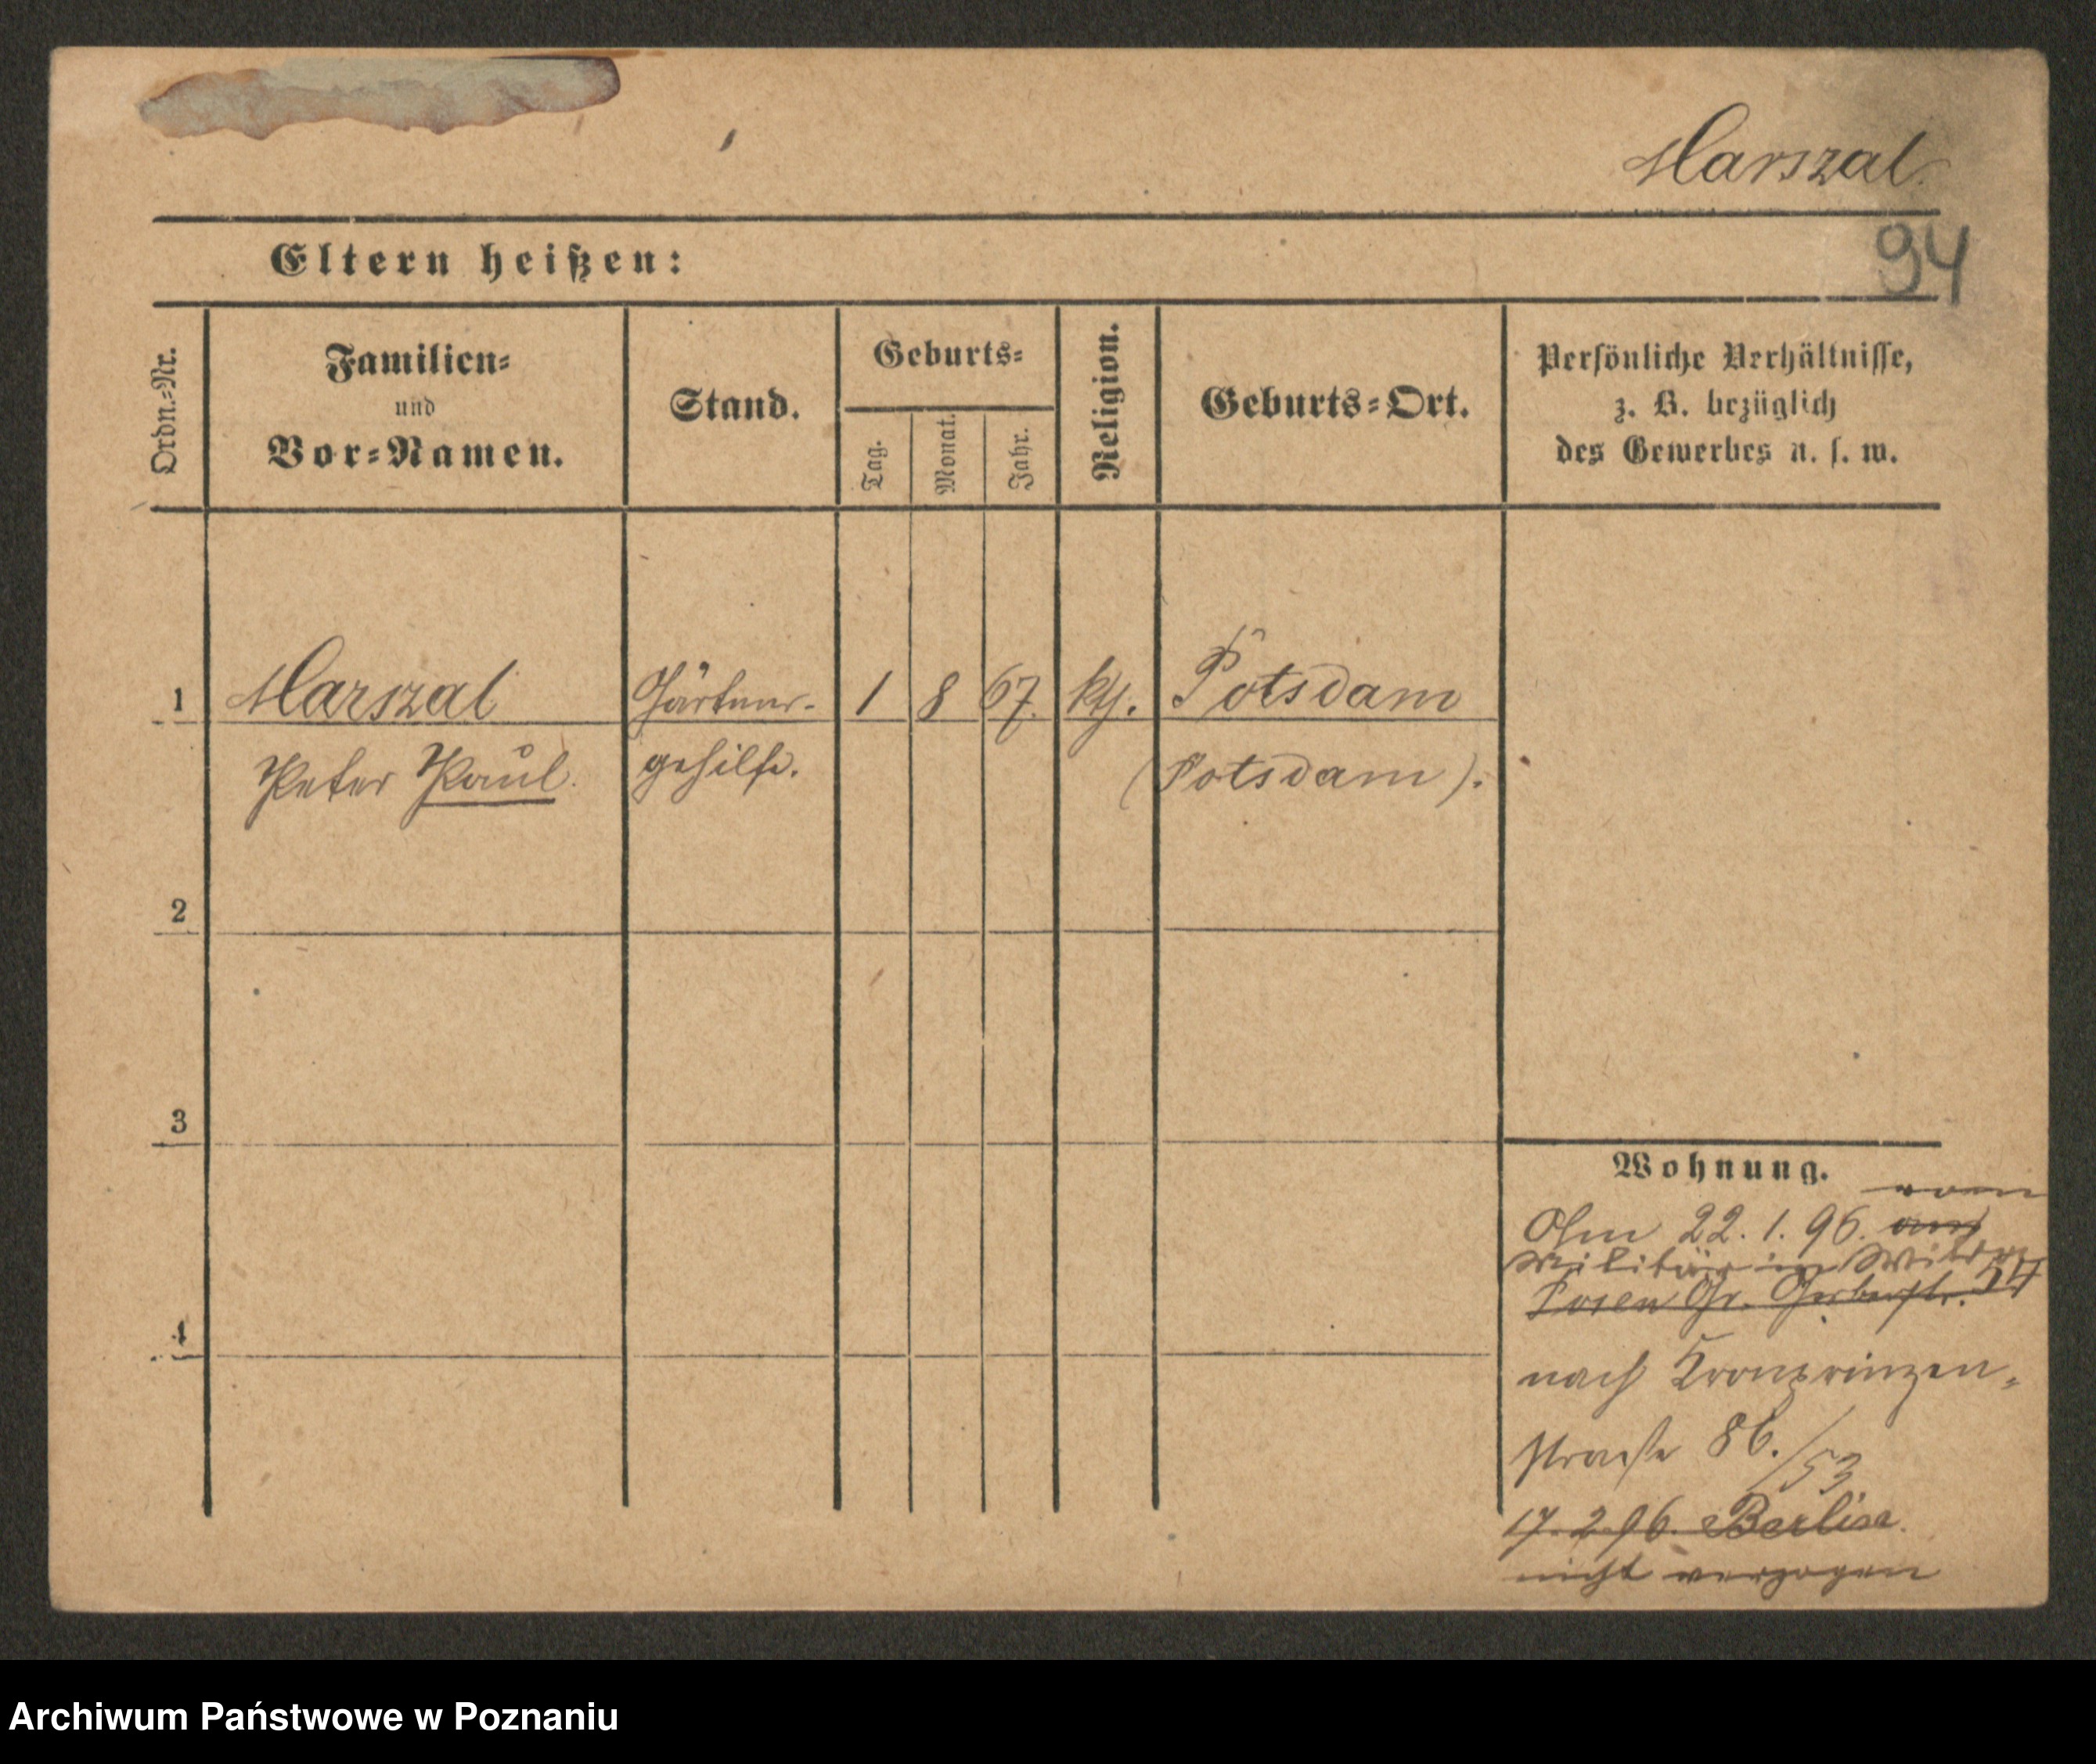 Marszal.
94
Eltern heißen:
Ordn.-Nr.
Familien-
und
Vor-Namen.
Stand.
Geburts-
Tag.
Monat.
Jahr.
Religion.
Geburts-Ort.
Persönliche Verhältnisse,
z. B. bezüglich
des Gewerbes u. s. w.
1 Marszal Gärtner- 1 8 67. kth. Potsdam
Peter Paul. gehilfe. (Potsdam).
2
3
4
Wohnung.
vom
22. 1. 96.
Militär in
Posen Gr. Gerberstr. 54
nach Kronprinzen-
strasse 86./53
17. 2. 96. Berlin.
nicht verzogen
Archiwum Państwowe w Poznaniu